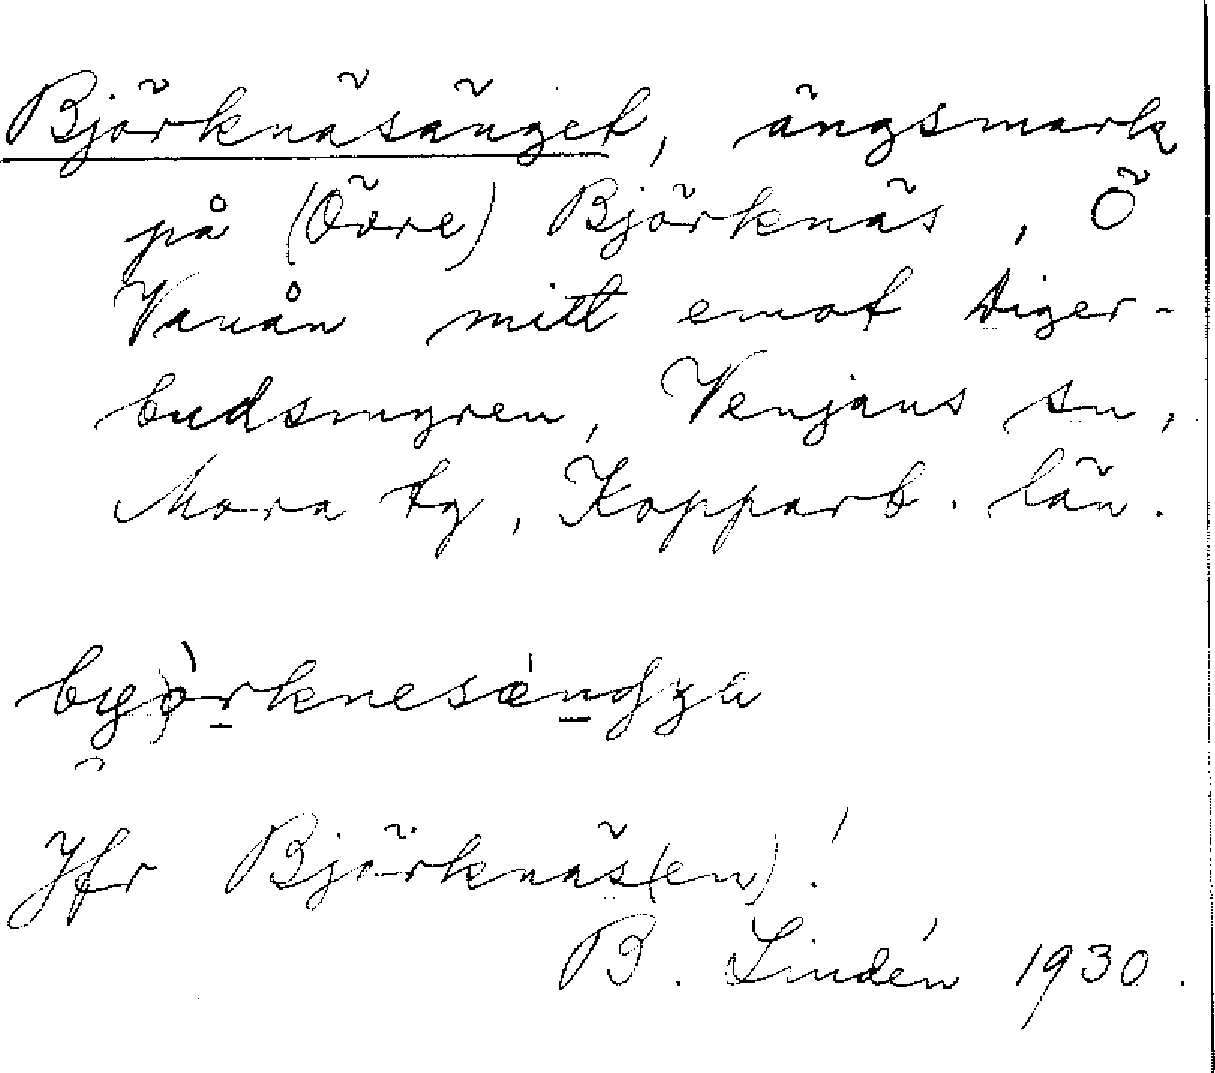 Björknäsänget, ängsmark
på (Övre) Björknäs, Ö
Vanån mitt emot Diger-
budsmyren, Venjans sn,
Mora tg, Kopparb. län.
Jfr Björknäs(en)!
B. Lindén 1930.